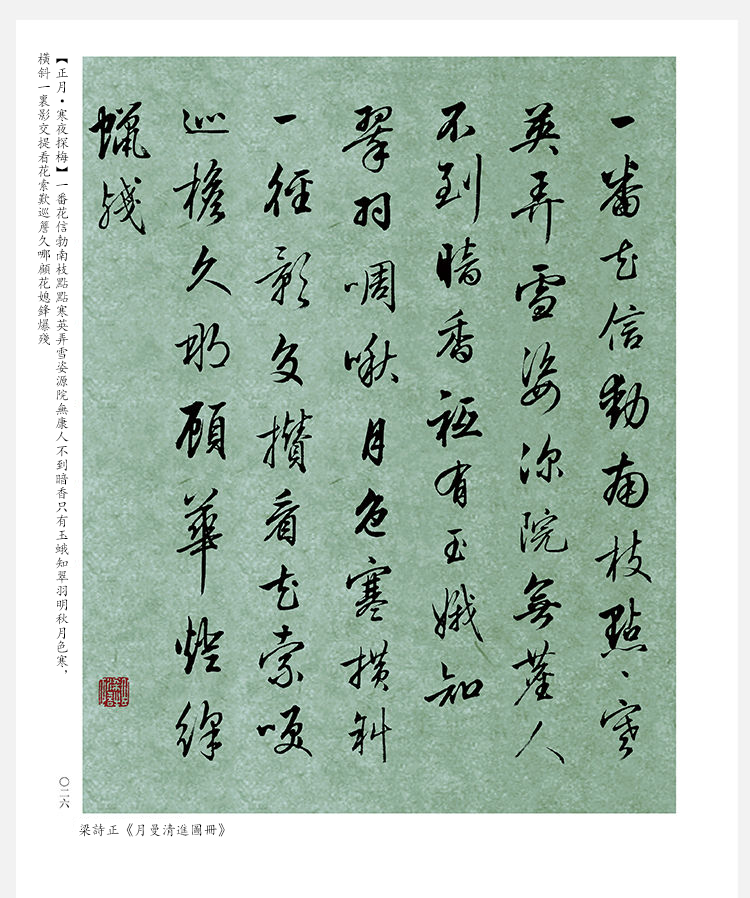 一番花信動南枝點〻寒
英弄雪姿深院無塵人
不到暗香祗有玉娥知
翠羽啁啾月色寒橫斜
一徑影交攢看花索咲
巡檐久那顧華燈絳
蠟殘
【正月·寒夜探梅】一番花信勃南枝點點寒英弄雪姿源院無康人不到暗香只有玉蛾知翠羽明秋月色寒，
橫斜一裏影交提看花索歎巡簷久哪顧花媳鋒爆殘
〇二六
梁詩正《月曼清進圖冊》